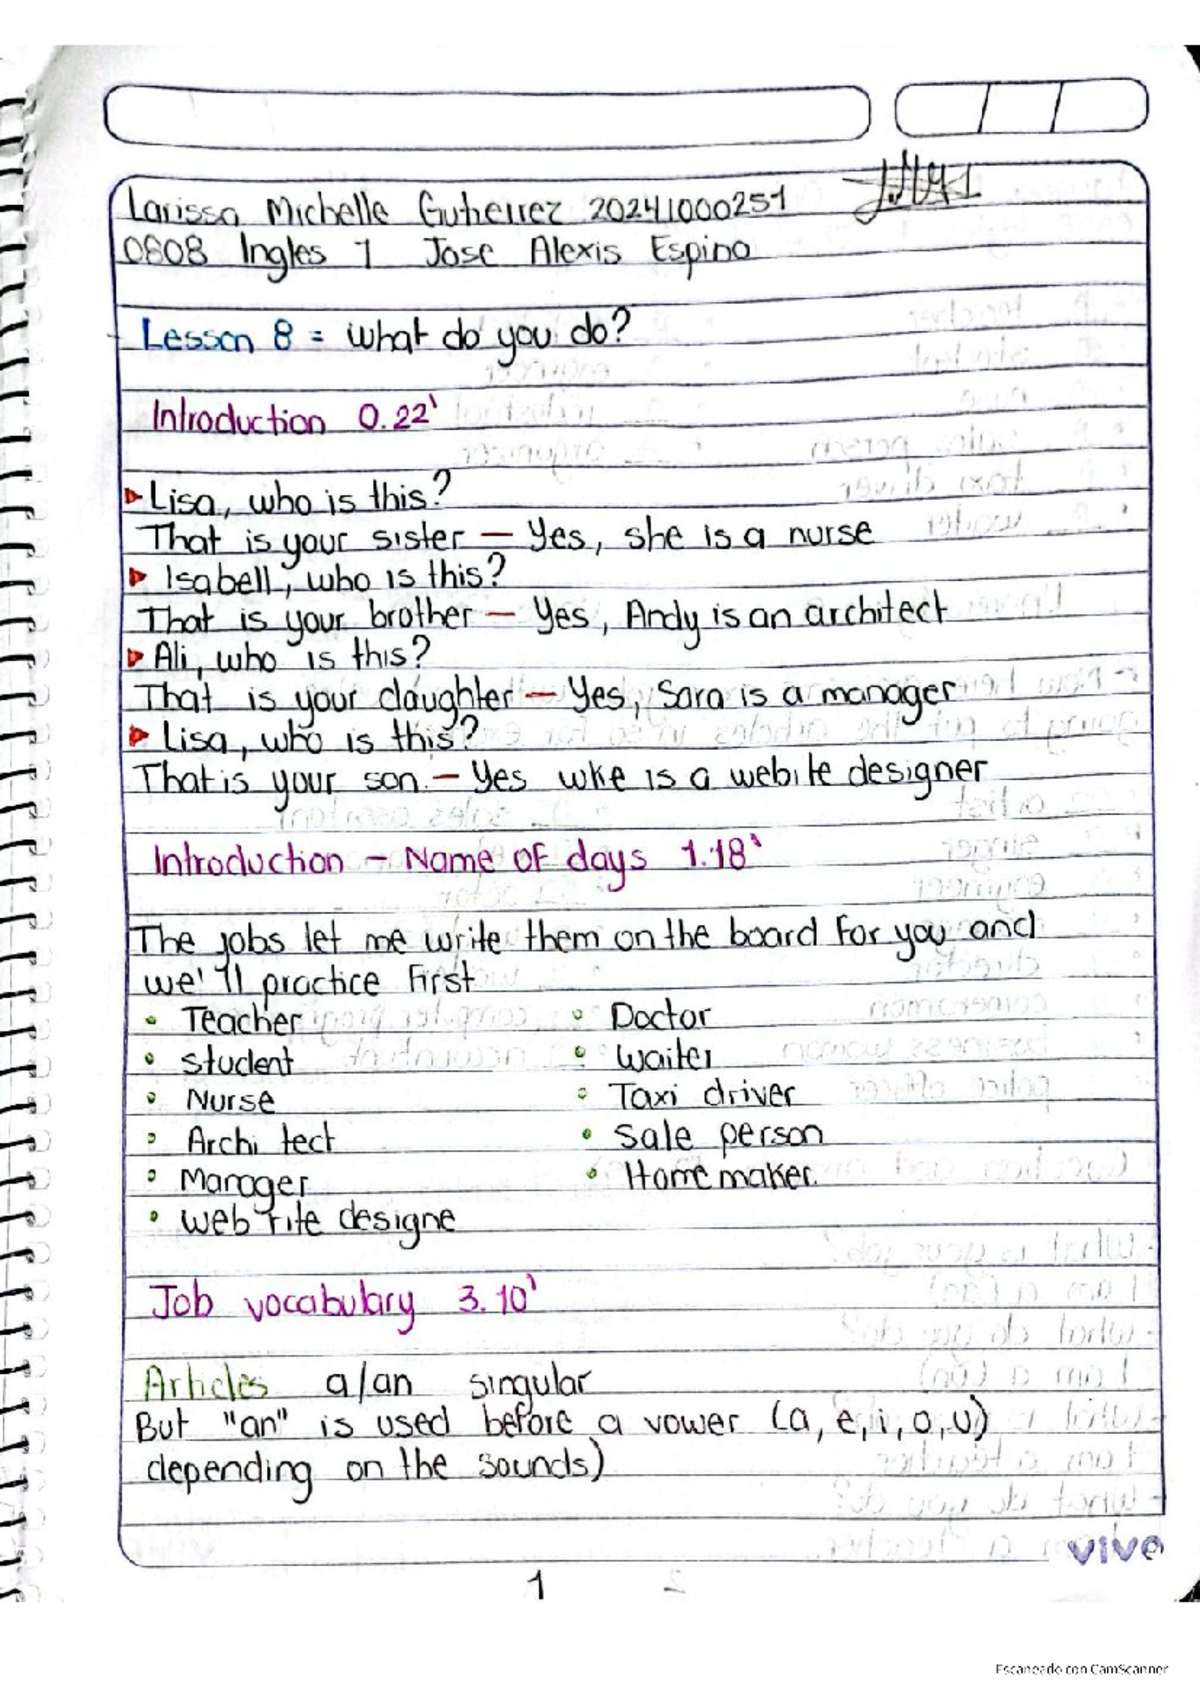 Larissa Michelle Gutierrez 20241000251
0808 Ingles 1 Jose Alexis Espino
Lesson 8 = what do you do?
Introduction 0.22'
Lisa, who is this?
That is your sister — Yes, she is a nurse
Isabell, who is this?
That is your brother — Yes, Andy is an architect
Ali, who is this?
That is your daughter — Yes, Sara is a manager
Lisa, who is this?
That is your son. — Yes wke is a webite designer
Introduction – Name of days 1.18'
The jobs let me write them on the board for you and
we'll practice first
• Teacher • Doctor
• student • waiter
• Nurse • Taxi driver
• Archi tect • Sale person
• Manager • Home maker.
• web rite designe
Job vocabulary 3.10'
Articles a/an singular
But "an" is used before a vower (a, e, i, o, u)
depending on the sounds)
vivo
1
Escaneado con CamScanner